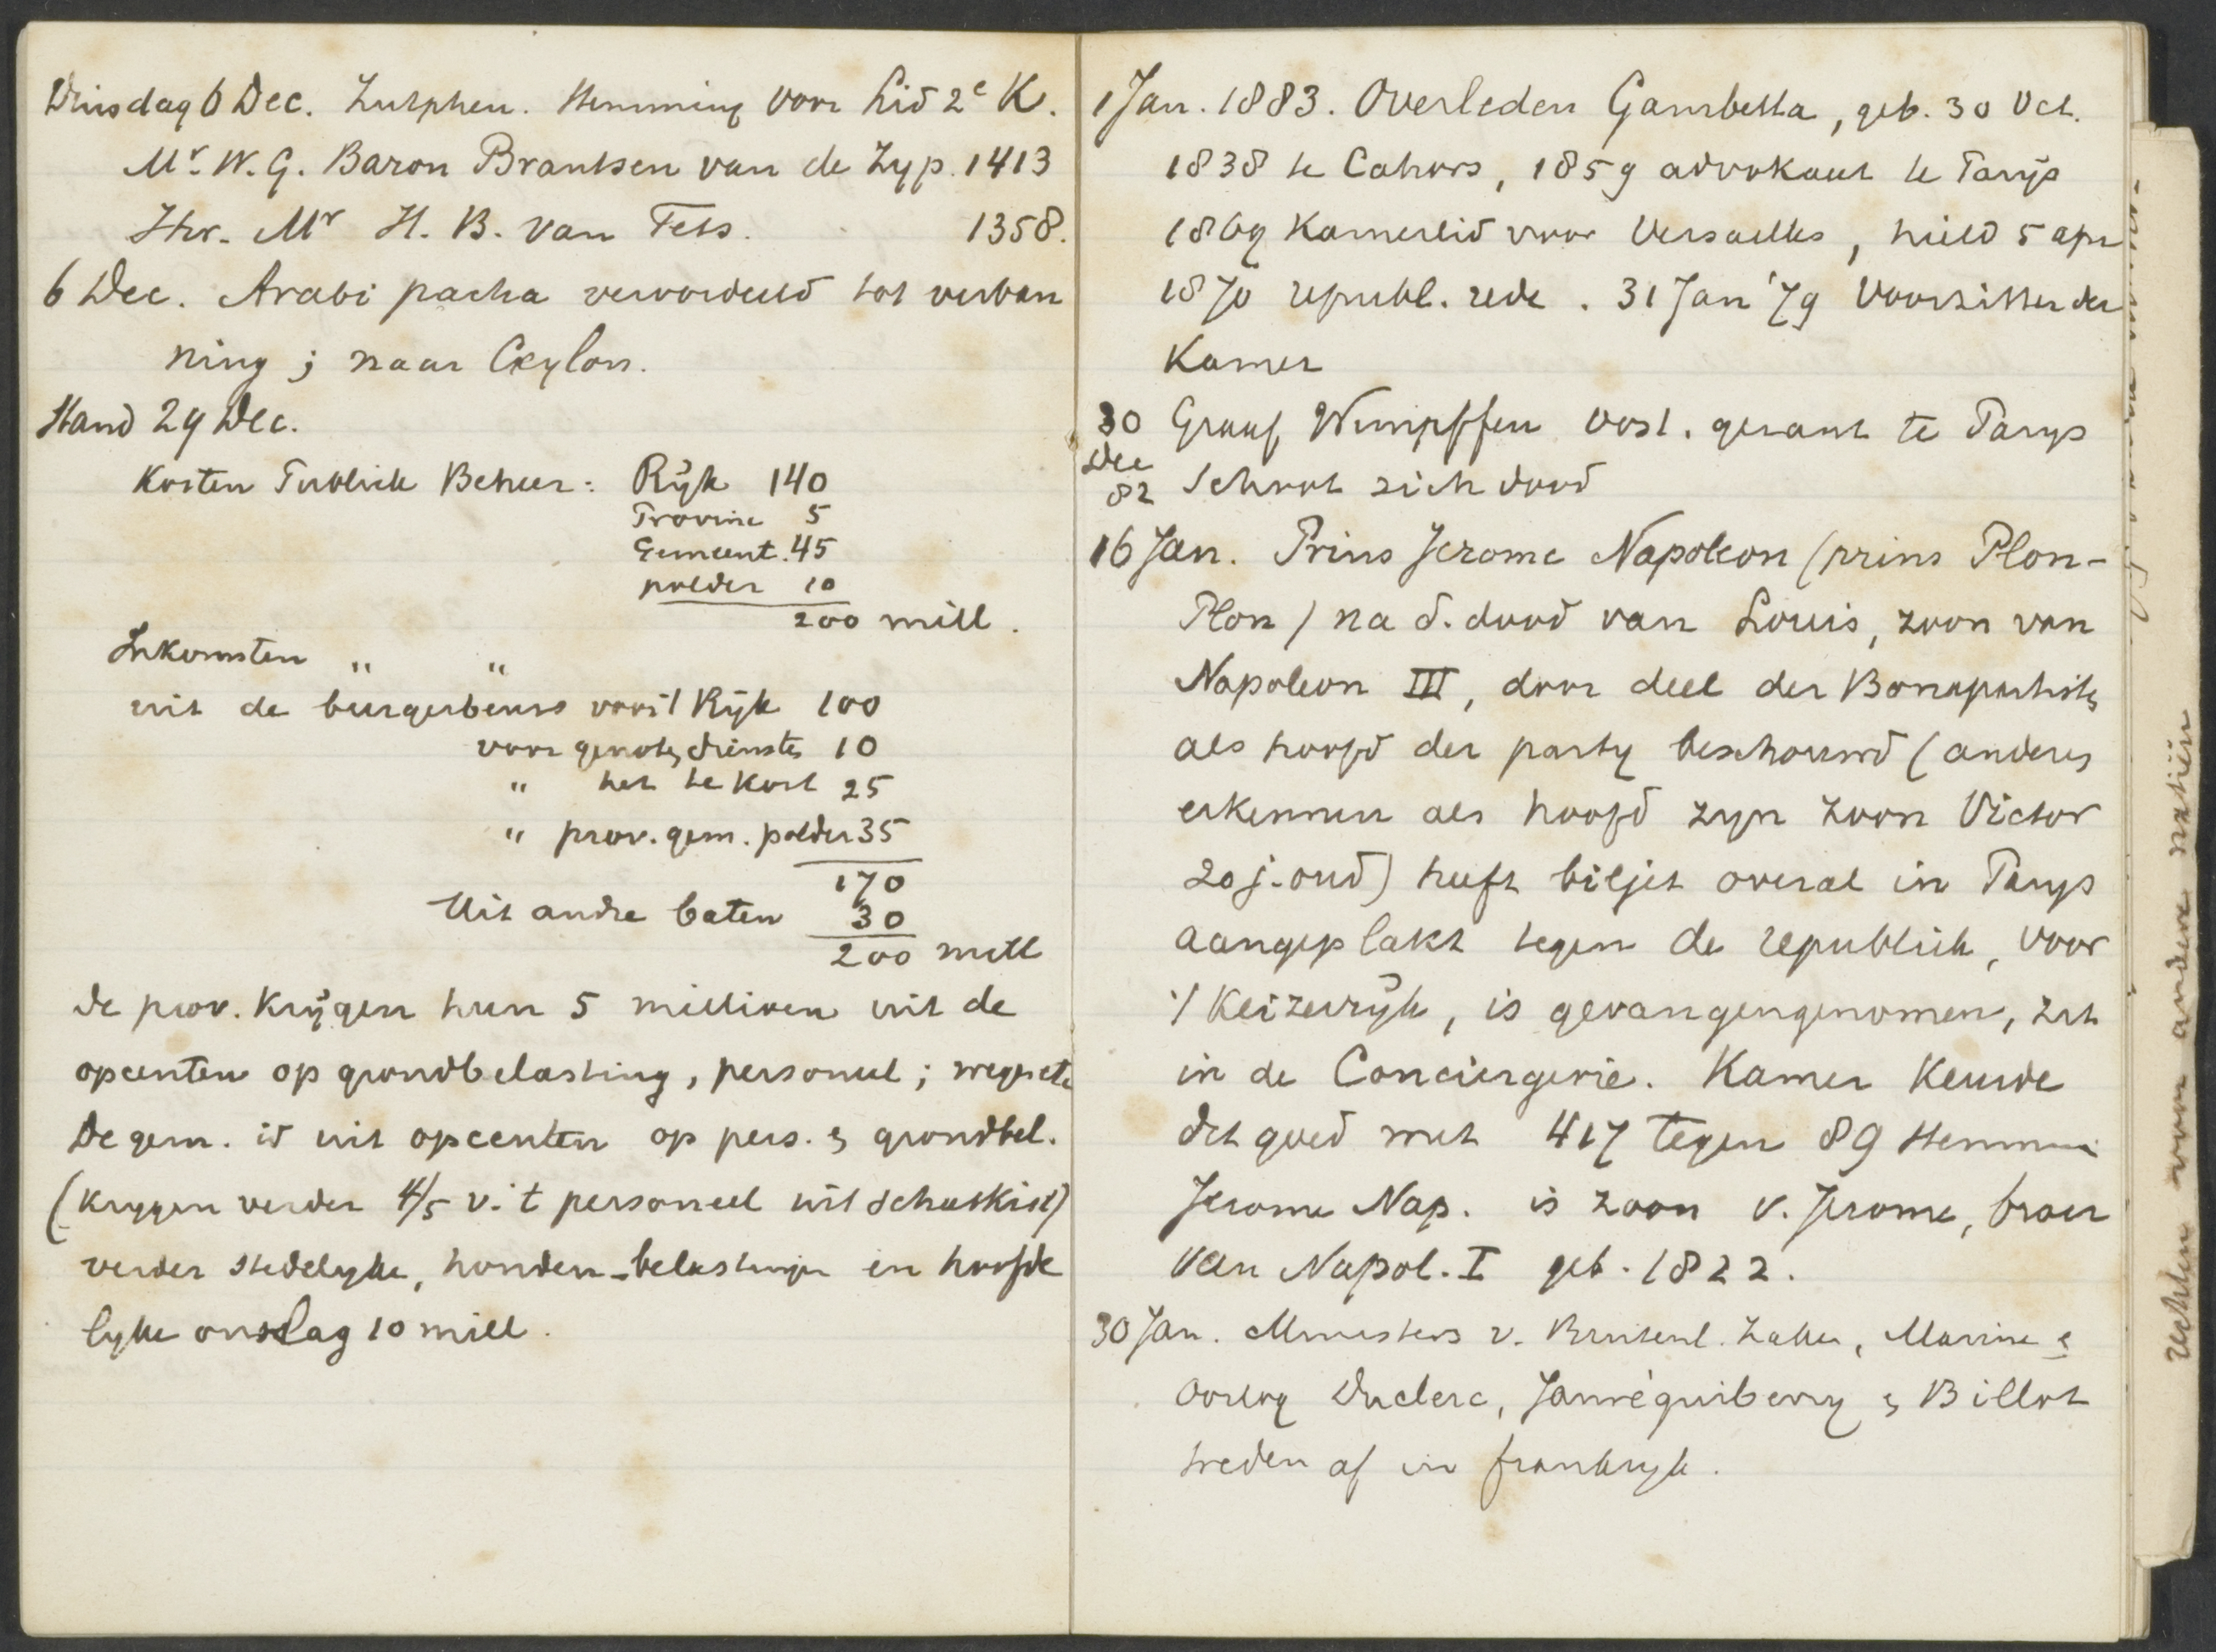 Dinsdag 6 Dec. Zutphen. Stemming voor Lid 2e K.
Mr. W. G. Baron Brantsen van de Zyp. 1413
Jhr. Mr H. B. van Tets. 1358.
6 Dec. Arabi pacha veroordeeld tot verban
ning ; naar Ceylon.
Stand 29 Dec.
Kosten Publiek Beheer : Rÿk 140
Provinc 5
Gemeent. 45
polder 10
200 mill.
Inkomsten " "
uit de burgerbeurs voor 't Ryk 100
voor genoten diensten 10
" het te kort 25
" prov. gem. polder 35
170
Uit andre baten 30
200 mill
de prov. krÿgen hun 5 millioen uit de
opcenten op grondbelasting, personeel ;
De gem. id uit opcenten op pers. & grondbel.
(krygen verder 4/5 v. 't personeel uit schatkist)
verder stedelyke, honden-belastingen en hoofde
lyke omslag 10 mill.
1 Jan. 1883. Overleden Gambetta, geb. 30 Oct.
1838 te Cahors, 1859 advokaat te Parÿs
1869 Kamerlid voor Versailles, hield 5 apr
1870 republ. rede. 31 Jan '79 Voorzitter der
Kamer
30 Dec 82 Graaf Wimpffen Oost. gezant te Parys
schoot zich dood
16 Jan. Prins Jerome Napoleon (prins Plon-
Plon) na d. dood van Louis, zoon van
Napoleon III, door deel der Bonapartisten
als hoofd der party beschouwd (anderen
erkennen als hoofd zyn zoon Victor
20 j. oud) heeft biljet overal in Parys
aangeplakt tegen de republiek, voor
't Keizerrÿk, is gevangengenomen, zit
in de Conciergerie. Kamer keurde
dit goed met 417 tegen 89 stemmen
Jerome Nap. is zoon v. Jerome, broer
van Napol. I geb. 1822.
30 Jan. Ministers v. Buitenl. Zaken, Marine &
Oorlog Duclerc, Jauréguiberry & Billot
treden af in frankryk.
rechten voor andere natiën